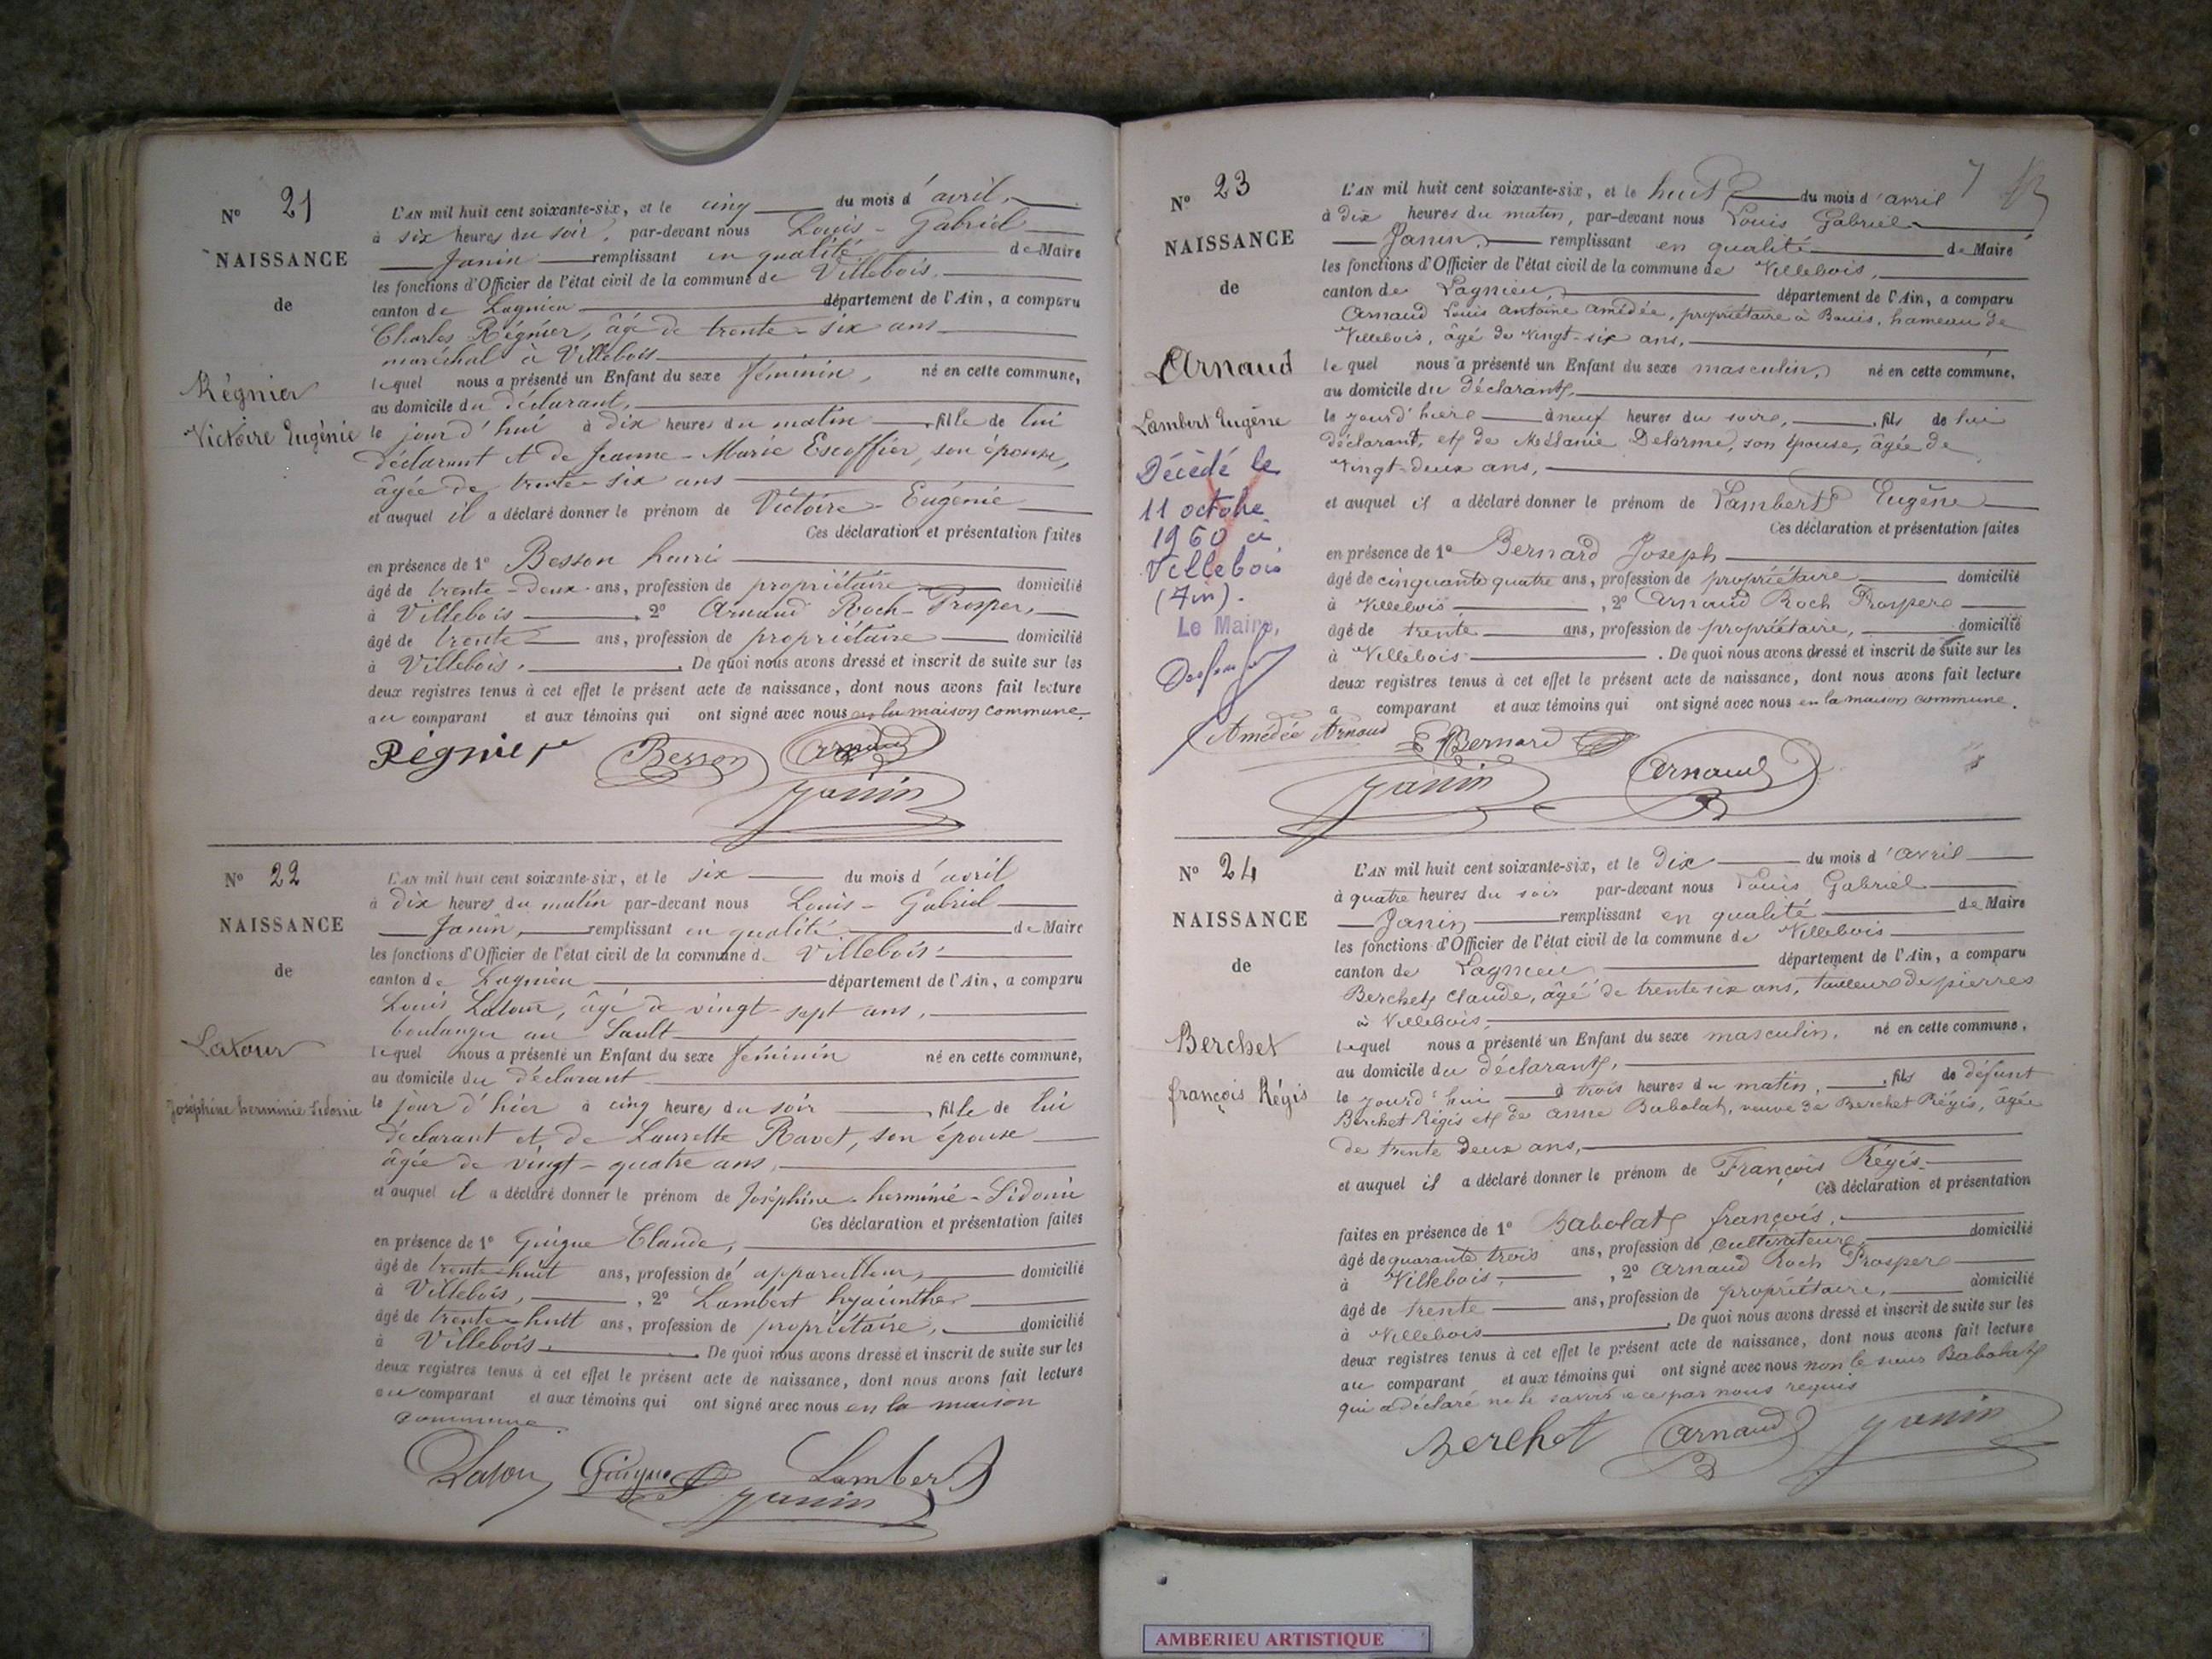 N° 21
NAISSANCE
de
Régnier
Victoire Eugénie
L'AN mil huit cent soixante-six, et le cinq du mois d'avril,
à six heures du soir, par-devant nous Louis-Gabriel
Janin remplissant en qualité de Maire
les fonctions d'Officier de l'état civil de la commune de Villebois,
canton de Lagnieu département de l'Ain, a comparu
Charles Régnier, âgé de trente-six ans
maréchal à Villebois
lequel nous a présenté un Enfant du sexe féminin, né en cette commune,
au domicile du déclarant,
le jour d'hui à dix heures du matin, fille de lui
déclarant et de Jeanne-Marie Escoffier, son épouse,
âgée de trente-six ans
et auquel il a déclaré donner le prénom de Victoire-Eugénie
Ces déclaration et présentation faites
en présence de 1° Besson henri
âgé de trente-deux ans, profession de propriétaire domicilié
à Villebois, 2° Arnaud Roch-Prosper,
âgé de trente ans, profession de propriétaire domicilié
à Villebois. De quoi nous avons dressé et inscrit de suite sur les
deux registres tenus à cet effet le présent acte de naissance, dont nous avons fait lecture
au comparant et aux témoins qui ont signé avec nous en la maison commune.
Régnier Besson Arnaud
Janin
N° 22
NAISSANCE
de
Latour
Joséphine herminie Sidonie
L'AN mil huit cent soixante-six, et le six du mois d'avril
à dix heures du matin par-devant nous Louis-Gabriel
Janin, remplissant en qualité de Maire
les fonctions d'Officier de l'état civil de la commune de Villebois
canton de Lagnieu département de l'Ain, a comparu
Louis Latour, âgé de vingt-sept ans,
boulanger au Sault
lequel nous a présenté un Enfant du sexe féminin né en cette commune,
au domicile du déclarant
le jour d'hier à cinq heures du soir, fille de lui
déclarant et de Laurette Ravet, son épouse
âgée de vingt-quatre ans,
et auquel il a déclaré donner le prénom de Joséphine-herminie-Sidonie
Ces déclaration et présentation faites
en présence de 1° Guigue Claude,
âgé de trente-huit ans, profession d'appareilleur, domicilié
à Villebois, 2° Lambert hyacinthe
âgé de trente-huit ans, profession de propriétaire, domicilié
à Villebois. De quoi nous avons dressé et inscrit de suite sur les
deux registres tenus à cet effet le présent acte de naissance, dont nous avons fait lecture
au comparant et aux témoins qui ont signé avec nous en la maison
commune
Latour Guigue Lambert
Janin
7
N° 23
NAISSANCE
de
Arnaud
Lambert Eugène
Décédé le
11 octobre
1960 à
Villebois
(Ain).
Le Maire,
L'AN mil huit cent soixante-six, et le huit du mois d'avril
à dix heures du matin, par-devant nous Louis Gabriel
Janin, remplissant en qualité de Maire
les fonctions d'Officier de l'état civil de la commune de Villebois,
canton de Lagnieu département de l'Ain, a comparu
Arnaud Louis Antoine Amédée, propriétaire à Bouis, hameau de
Villebois, âgé de vingt-six ans,
le quel nous a présenté un Enfant du sexe masculin, né en cette commune,
au domicile du déclarant,
le jourd'hier à neuf heures du soir, fils de lui
déclarant, et de Mélanie Delorme, son épouse, âgée de
vingt-deux ans,
et auquel il a déclaré donner le prénom de Lambert Eugène
Ces déclaration et présentation faites
en présence de 1° Bernard Joseph
âgé de cinquante quatre ans, profession de propriétaire domicilié
à Villebois, 2° Arnaud Roch Prosper
âgé de trente ans, profession de propriétaire, domicilié
à Villebois. De quoi nous avons dressé et inscrit de suite sur les
deux registres tenus à cet effet le présent acte de naissance, dont nous avons fait lecture
a comparant et aux témoins qui ont signé avec nous en la maison commune.
Amédée Arnaud Bernard
Janin Arnaud
N° 24
NAISSANCE
de
Berchet
françois Régis
L'AN mil huit cent soixante-six, et le dix du mois d'avril
à quatre heures du soir par-devant nous Louis Gabriel
Janin remplissant en qualité de Maire
les fonctions d'Officier de l'état civil de la commune de Villebois
canton de Lagnieu département de l'Ain, a comparu
Berchet Claude, âgé de trente six ans, tailleur de pierres
à Villebois,
lequel nous a présenté un Enfant du sexe masculin, né en cette commune,
au domicile du déclarant,
le jourd'hui à trois heures du matin, fils de défunt
Berchet Régis et de anne Babolat, veuve de Berchet Régis, âgée
de trente deux ans,
et auquel il a déclaré donner le prénom de François Régis
Ces déclaration et présentation
faites en présence de 1° Babolat françois,
âgé de quarante trois ans, profession de cultivateur, domicilié
à Villebois, 2° Arnaud Roch Prosper
âgé de trente ans, profession de propriétaire, domicilié
à Villebois. De quoi nous avons dressé et inscrit de suite sur les
deux registres tenus à cet effet le présent acte de naissance, dont nous avons fait lecture
au comparant et aux témoins qui ont signé avec nous non le sieur Babolat
qui a déclaré ne le savoir de ce par nous requis
Berchet Arnaud Janin
AMBERIEU ARTISTIQUE